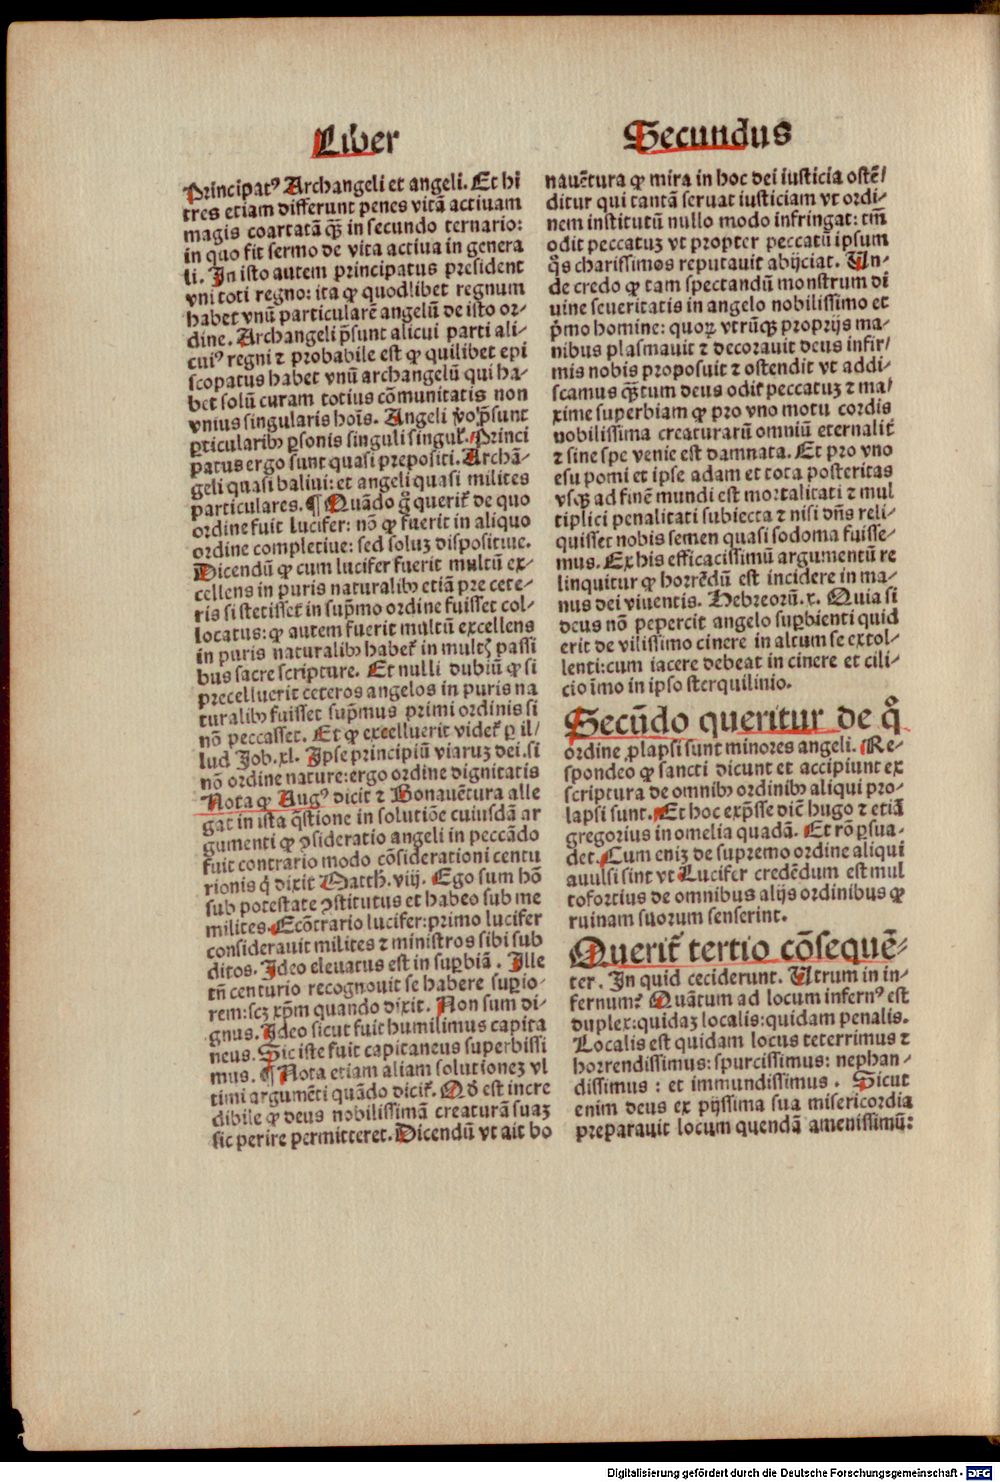 Liber
Secundus
Principatꝰ Archangeli et angeli. Et hi
tres etiam differunt penes vitā actiuam
magis coartatā qꝫ̄ in secundo ternario:
in quo fit sermo de vita actiua in genera
li. In isto autem principatus president
vni toti regno: ita ꝙ quodlibet regnum
habet vnū particularē angelū de isto or-
dine. Archangeli p̄sunt alicui parti ali-
cuiꝰ regni ⁊ probabile est ꝙ quilibet epi
scopatus habet vnū archangelū qui ha-
bet solū curam totius cōmunitatis non
vnius singularis hoīs. Angeli ṽo p̄sunt
ꝑticularibꝰ ꝑsonis singuli singul̕. Princi
patus ergo sunt quasi prepositi. Archā-
geli quasi baliui: et angeli quasi milites
particulares. ¶ Quādo g̊ querit̕ de quo
ordine fuit lucifer: nō ꝙ fuerit in aliquo
ordine completiue: sed soluꝫ dispositiue.
Dicendū ꝙ cum lucifer fuerit multū ex-
cellens in puris naturalibꝰ etiā pre cete-
ris si stetisset̕ in sup̄mo ordine fuisset col-
locatus: ꝙ autem fuerit multū excellens
in puris naturalibꝰ habet̕ in multꝭ passi
bus sacre scripture. Et nulli dubiū ꝙ si
precelluerit ceteros angelos in puris na
turalibꝰ fuisset sup̄mus primi ordinis si
nō peccasset. Et ꝙ excelluerit videt̕ ꝑ il-
lud Job. xl. Ipse principiū viaruꝫ dei. si
nō ordine nature: ergo ordine dignitatis
Nota ꝙ Augꝰ dicit ⁊ Bonauētura alle
gat in ista q̄stione in solutiōe cuiusdā ar
gumenti ꝙ ꝯsideratio angeli in peccādo
fuit contrario modo cōsiderationi centu
rionis q̇ dixit Matth̄. viij. Ego sum hō
sub potestate ꝯstitutus et habeo sub me
milites. Ecōtrario lucifer: primo lucifer
considerauit milites ⁊ ministros sibi sub
ditos. Ideo eleuatus est in suꝑbiā. Ille
tn̄ centurio recognouit se habere suꝑio-
rem: scꝫ xp̄m quando dixit. Non sum di-
gnus. Ideo sicut fuit humilimus capita
neus. Sic iste fuit capitaneus superbissi
mus. ¶ Nota etiam aliam solutionez vl
timi argumēti quādo dicit̕. Qd̕ est incre
dibile ꝙ deus nobilissimā creaturā suaꝫ
sic perire permitteret. Dicendū vt ait bo
nauētura ꝙ mira in hoc dei iusticia ostē-
ditur qui tantā seruat iusticiam vt ordi-
nem institutū nullo modo infringat: tm̄
odit peccatuꝫ vt propter peccatū ipsum
q̊s charissimos reputauit abijciat. Un-
de credo ꝙ tam spectandū monstrum di
uine seueritatis in angelo nobilissimo et
p̄mo homine: quoꝝ vtrūqꝫ proprijs ma-
nibus plasmauit ⁊ decorauit deus infir-
mis nobis proposuit ⁊ ostendit vt addi-
scamus qꝫ̄tum deus odit̕ peccatuꝫ ⁊ ma-
xime superbiam ꝙ pro vno motu cordis
nobilissima creaturarū omniū eternalit̕
⁊ sine spe venie est damnata. Et pro vno
esu pomi et ipse adam et tota posteritas
vsqꝫ ad finē mundi est mortalitati ⁊ mul
tiplici penalitati subiecta ⁊ nisi dn̄s reli-
quisset nobis semen quasi sodoma fuisse-
mus. Ex his efficacissimū argumentū re
linquitur ꝙ horrēdū est incidere in ma-
nus dei viuentis. Hebreorū. x. Quia si
deus nō pepercit angelo suꝑbienti quid
erit de vilissimo cinere in altum se extol-
lenti: cum iacere debeat in cinere et cili-
cio īmo in ipso sterquilinio.
Secūdo queritur de q̊
ordine ꝓlapsi sunt minores angeli. Re-
spondeo ꝙ sancti dicunt et accipiunt ex
scriptura de omnibꝰ ordinibꝰ aliqui pro-
lapsi sunt. Et hoc exp̄sse dic̄t hugo ⁊ etiā
gregorius in omelia quadā. Et rō ꝑsua-
det. Cum eniꝫ de supremo ordine aliqui
auulsi sint vt Lucifer credēdum est mul
tofortius de omnibus alijs ordinibus ꝙ
ruinam suorum senserint.
Querit̕ tertio cōsequē-
ter. In quid ceciderunt. Utrum in in-
fernum? Quātum ad locum infernꝰ est
duplex: quidaꝫ localis: quidam penalis.
Localis est quidam locus teterrimus ⁊
horrendissimus: spurcissimus: nephan-
dissimus: et immundissimus. Sicut
enim deus ex pijssima sua misericordia
preparauit locum quendā amenissimū:
Digitalisierung gefördert durch die Deutsche Forschungsgemeinschaft - DFG